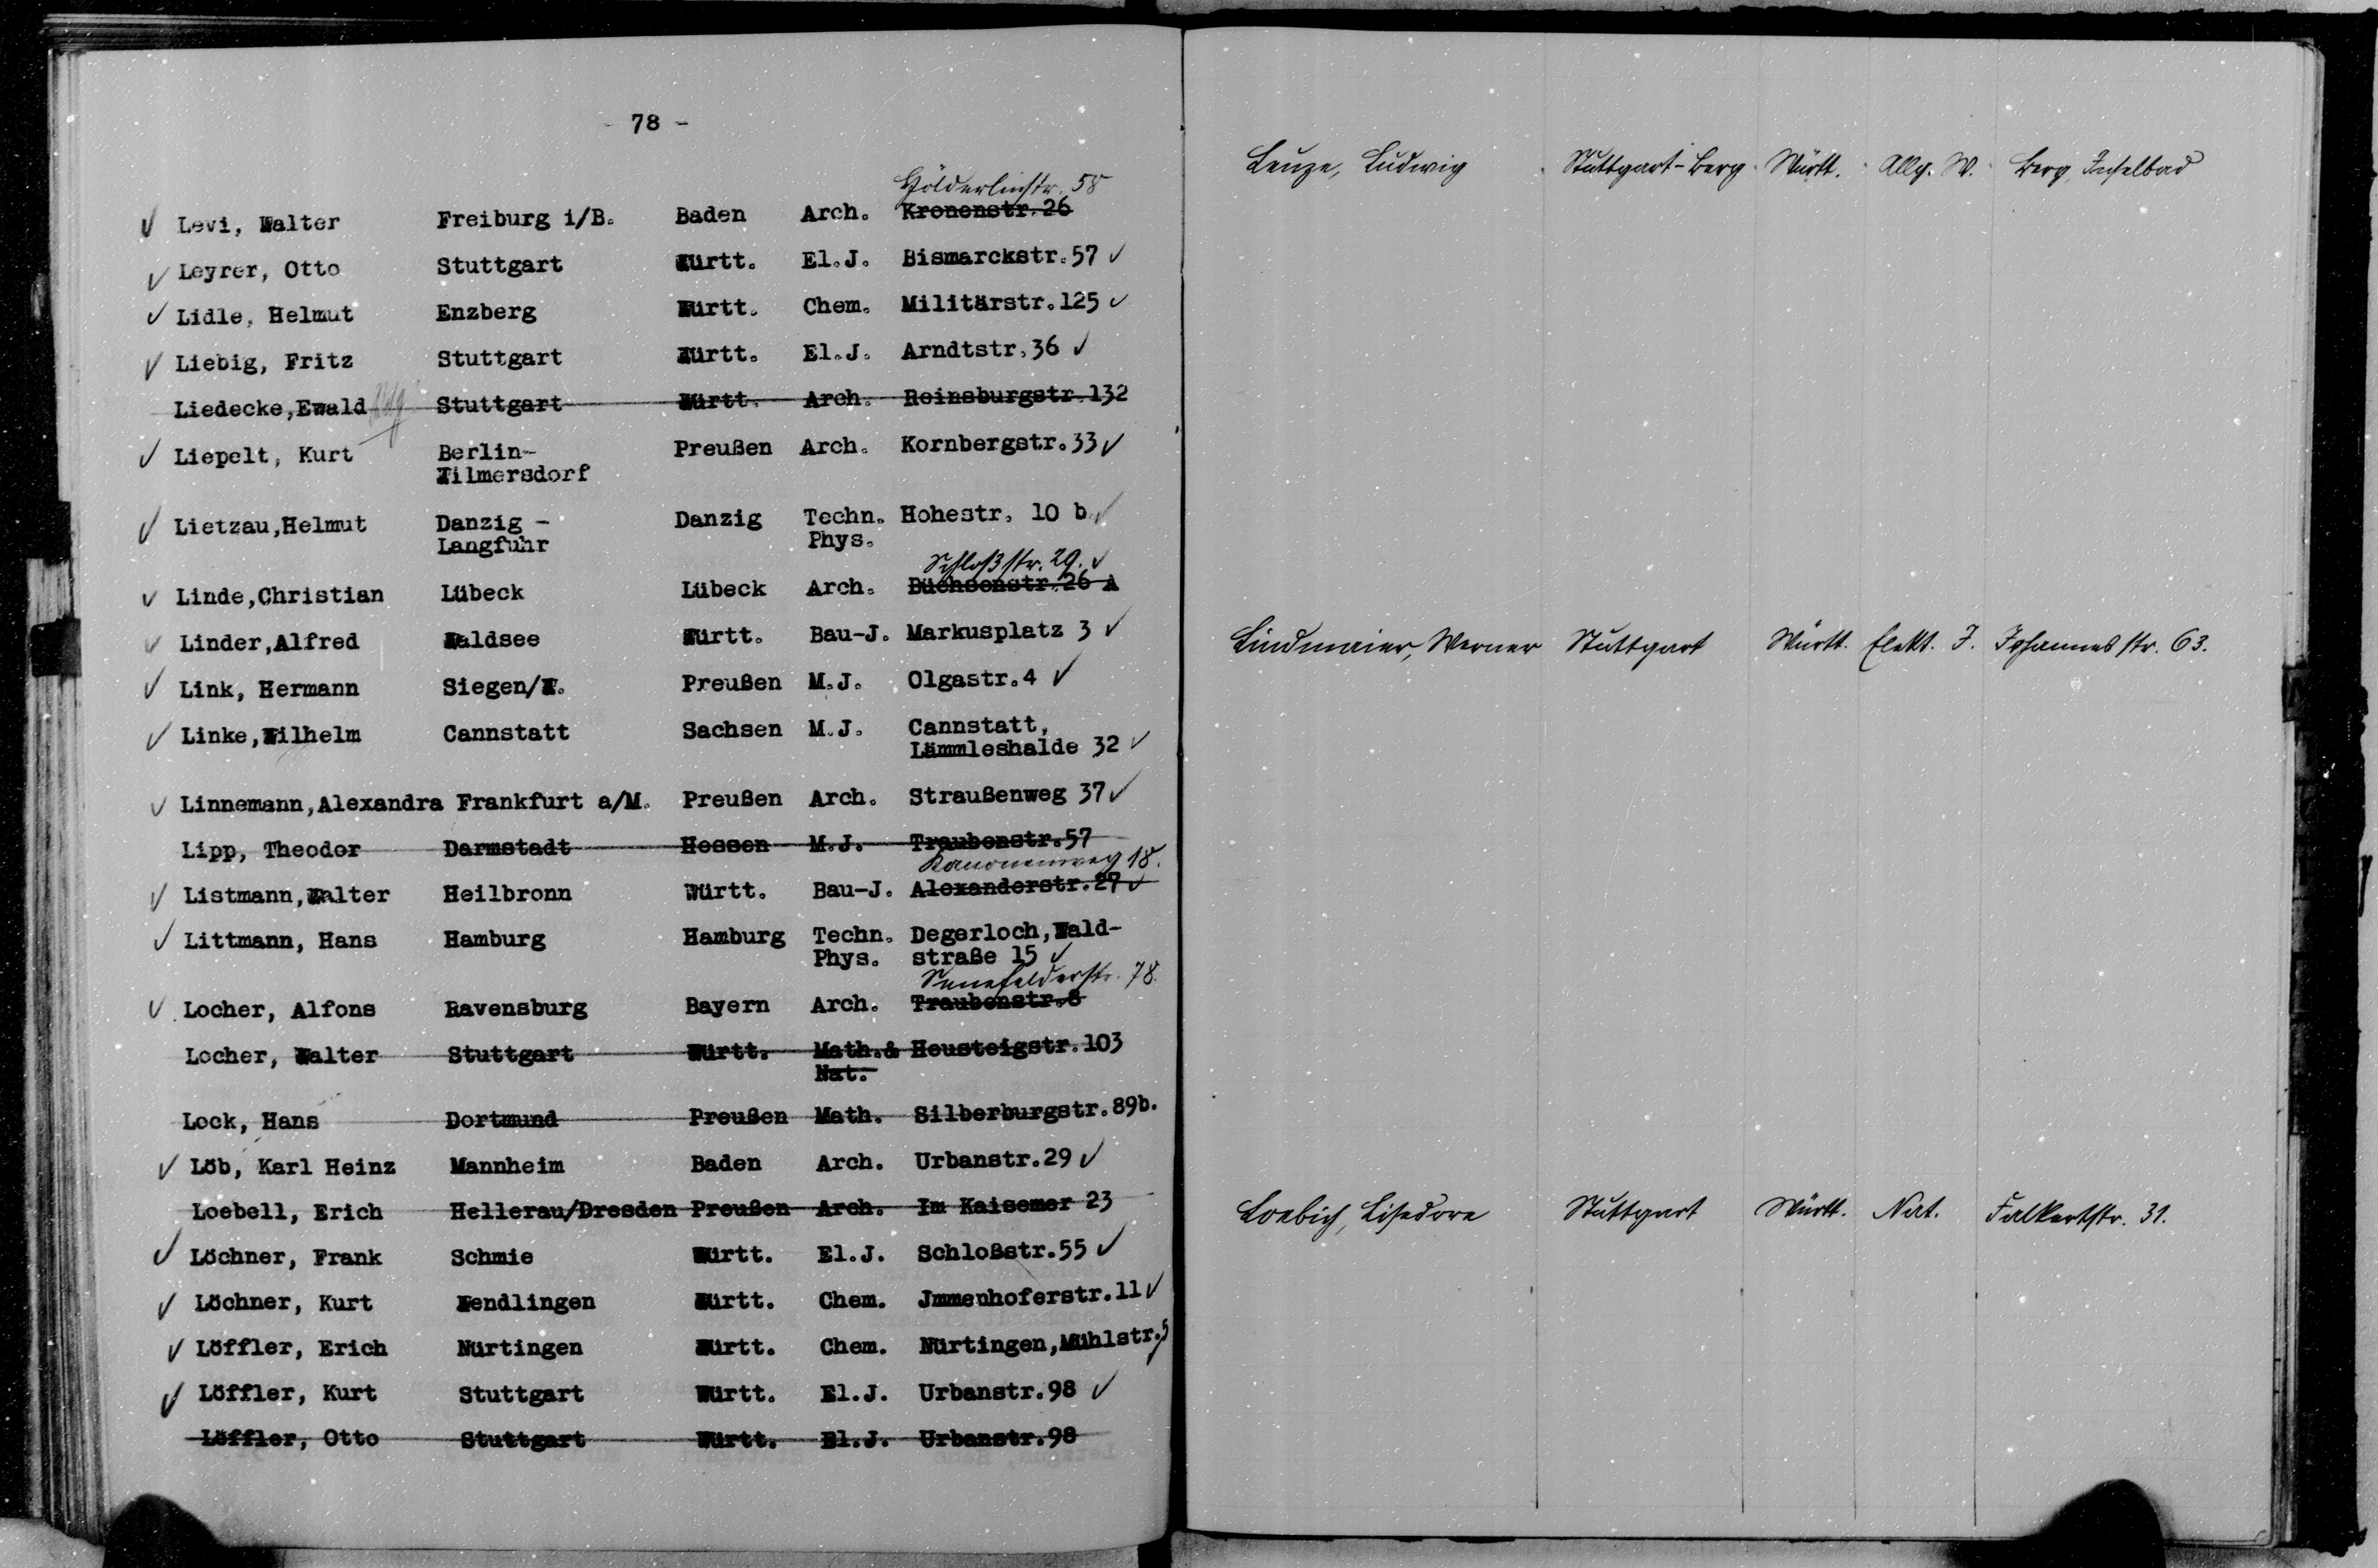 - 78 -
Hölderlinstr. 58
✓ Levi, Walter Freiburg i/B. Baden Arch. Kronenstr.26
✓ Leyrer, Otto Stuttgart Württ. El.J. Bismarckstr.57 ✓
✓ Lidle, Helmut Enzberg Württ. Chem. Militärstr.125 ✓
✓ Liebig, Fritz Stuttgart Württ. El.J. Arndtstr.36 ✓
Liedecke,Ewald Stuttgart Württ. Arch. Reinsburgstr.132
✓ Liepelt, Kurt Berlin- Preußen Arch. Kornbergstr.33 ✓
Wilmersdorf
✓ Lietzau,Helmut Danzig - Danzig Techn. Hohestr. 10 b ✓
Langfuhr Phys.
Schloßstr. 29. ✓
✓ Linde,Christian Lübeck Lübeck Arch. Büchsenstr.26 A
✓ Linder,Alfred Waldsee Württ. Bau-J. Markusplatz 3 ✓
✓ Link, Hermann Siegen/W. Preußen M.J. Olgastr.4 ✓
✓ Linke,Wilhelm Cannstatt Sachsen M.J. Cannstatt,
Lämmleshalde 32 ✓
✓ Linnemann,Alexandra Frankfurt a/M. Preußen Arch. Straußenweg 37 ✓
Lipp, Theodor Darmstadt Hessen M.J. Traubenstr.57
Kanonenweg 18.
✓ Listmann,Walter Heilbronn Württ. Bau-J. Alexanderstr.27 ✓
✓ Littmann, Hans Hamburg Hamburg Techn. Degerloch,Wald-
Phys. straße 15 ✓
Senefelderstr. 78.
✓ Locher, Alfons Ravensburg Bayern Arch. Traubenstr.8
Locher, Walter Stuttgart Württ. Math.& Heusteigstr.103
Nat.
Lock, Hans Dortmund Preußen Math. Silberburgstr.89b.
✓ Löb, Karl Heinz Mannheim Baden Arch. Urbanstr.29 ✓
Loebell, Erich Hellerau/Dresden Preußen Arch. Im Kaisemer 23
✓ Löchner, Frank Schmie Württ. El.J. Schloßstr.55 ✓
✓ Löchner, Kurt Wendlingen Württ. Chem. Jmmenhoferstr.11 ✓
✓ Löffler, Erich Nürtingen Württ. Chem. Nürtingen,Mühlstr.5
✓ Löffler, Kurt Stuttgart Württ. El.J. Urbanstr.98 ✓
Löffler, Otto Stuttgart Württ. El.J. Urbanstr.98
Leuze, Ludwig Stuttgart-Berg Württ. Allg. W. Berg, Inselbad
Lindmaier, Werner Stuttgart Württ. Elekt. J. Johannesstr. 63.
Loebich, Lisedore Stuttgart Württ. Nat. Falkertstr. 31.